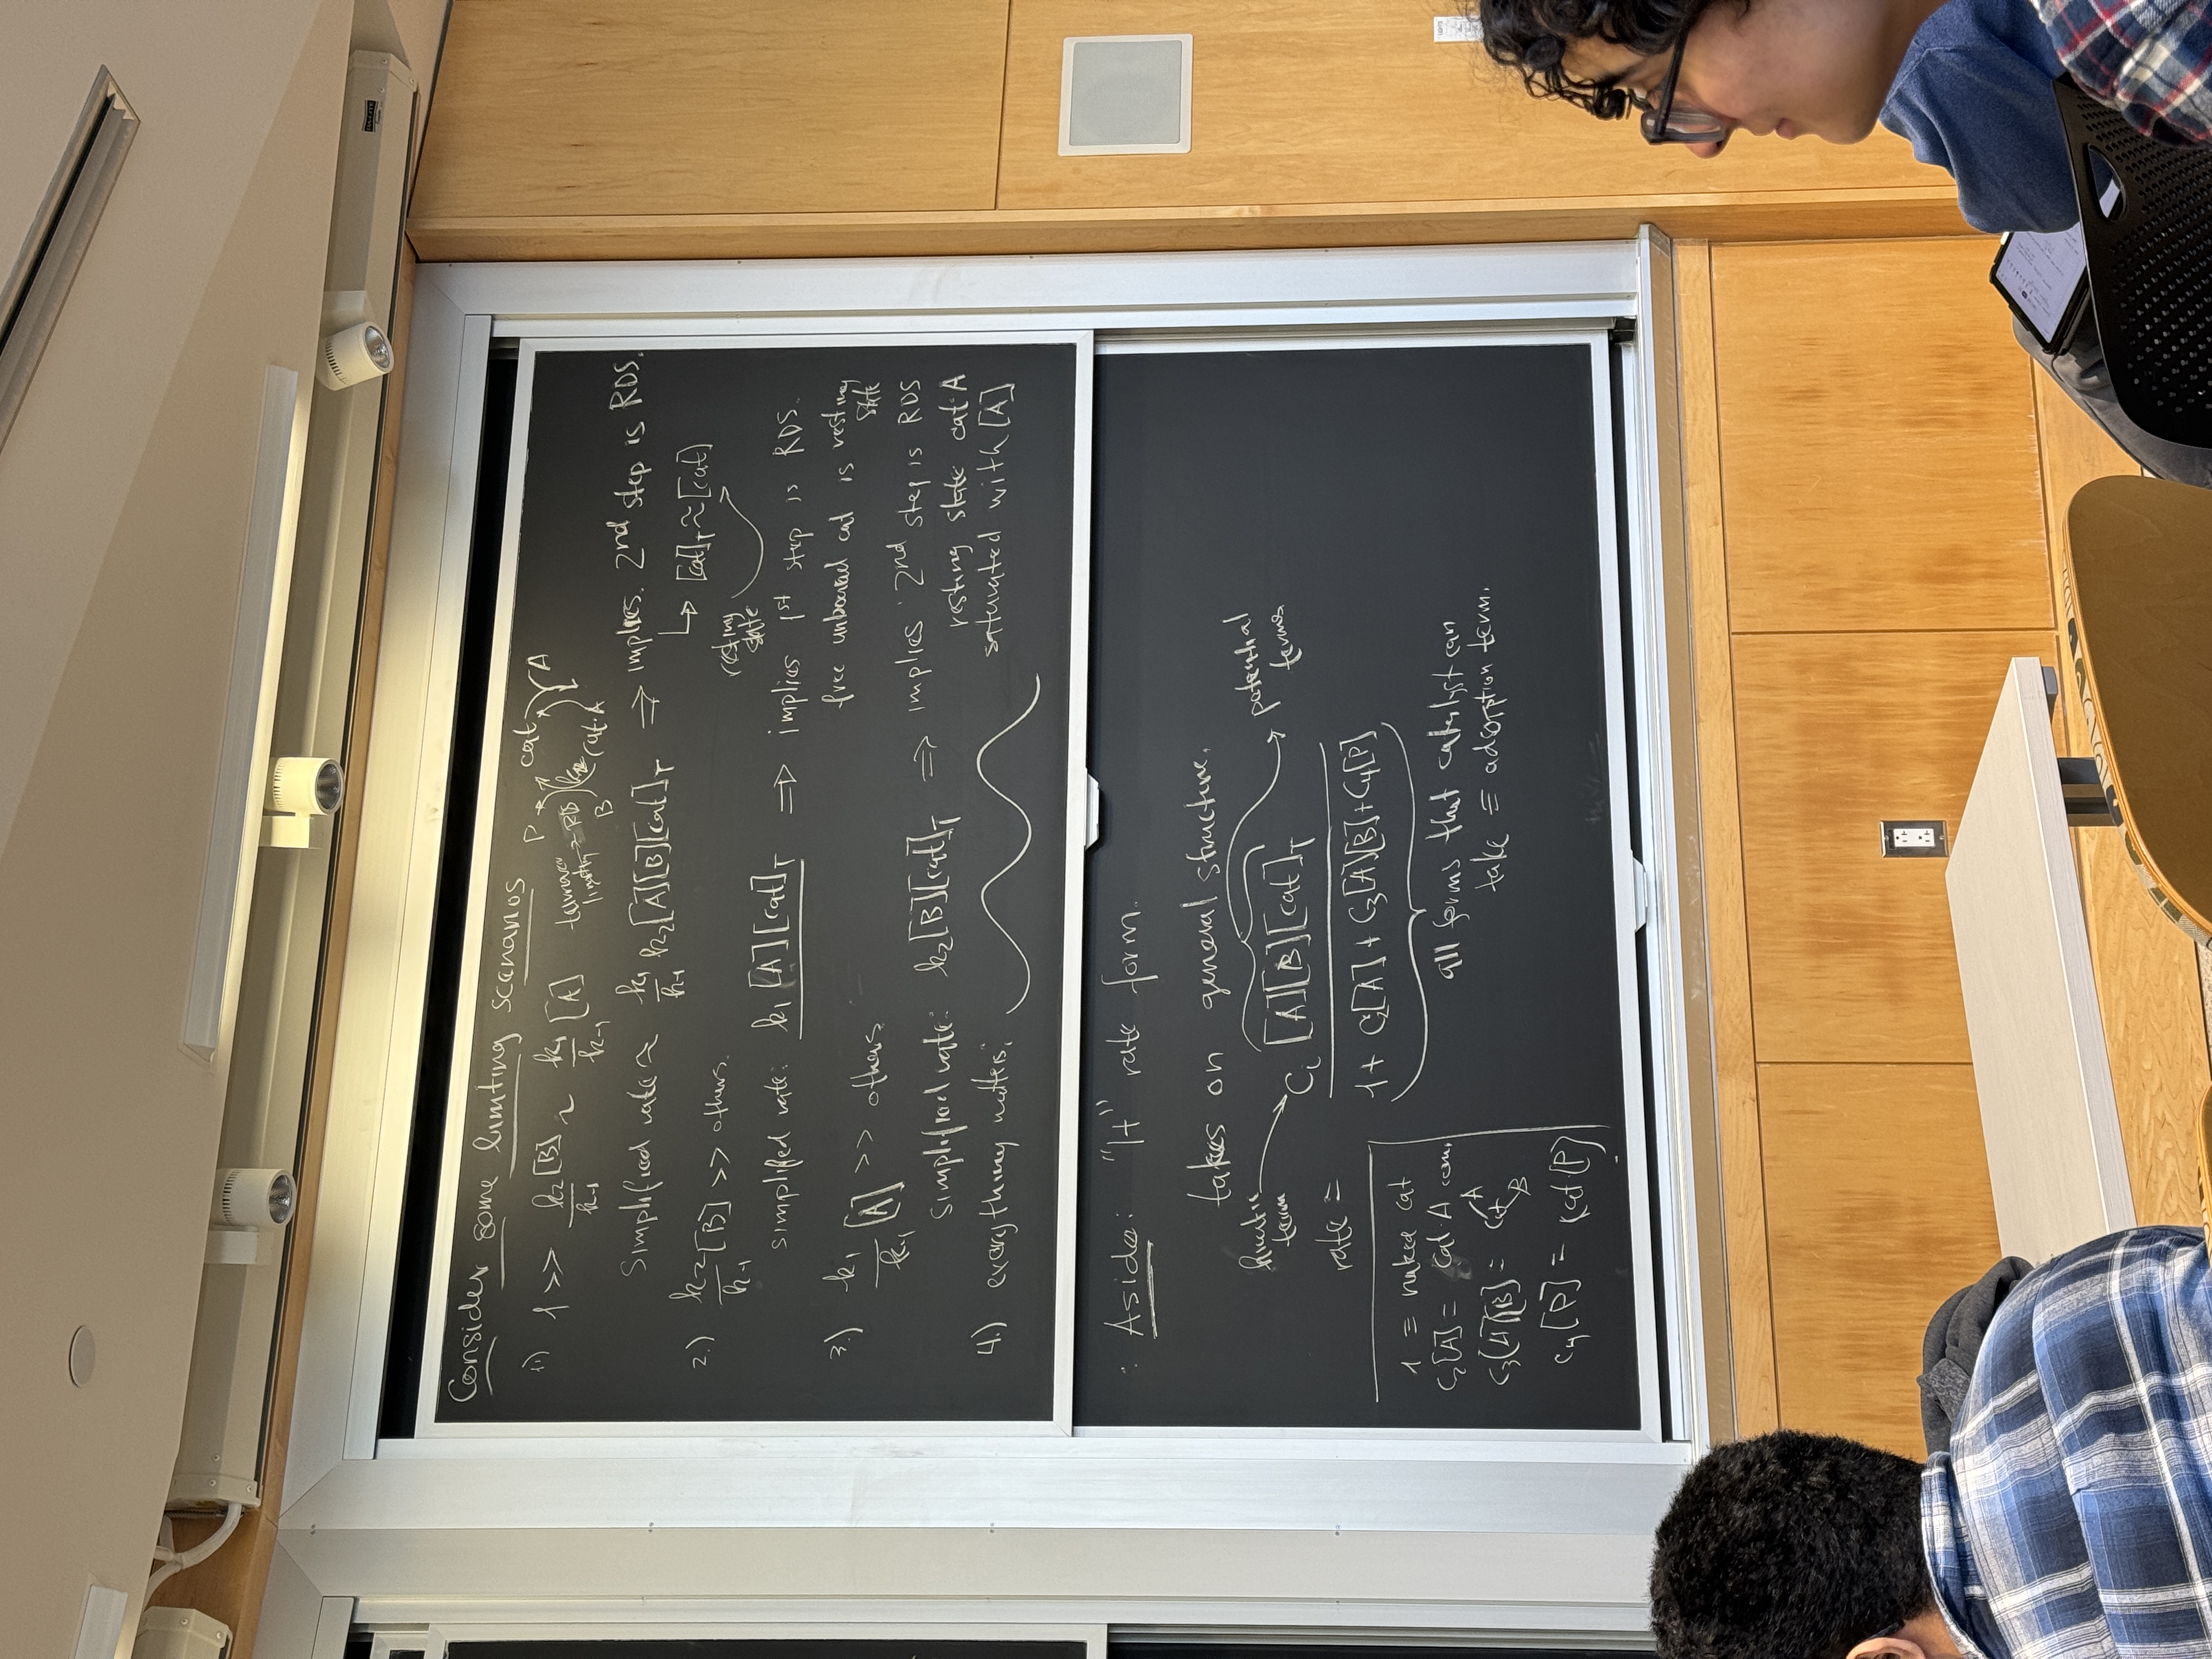 Consider some limiting scenarios
1.) 1 >> k2/k-1 [B] ~ k1/k-1 [A]
turnover limiting => RDS
P cat A
B k2 cat·A
Simplified rate ≈ k1/k-1 k2[A][B][cat]T ⇒ implies 2nd step is RDS.
↳ [cat]T ≈ [cat]
resting state
2.) k2/k-1 [B] >> others.
simplified rate: k1[A][cat]T ⇒ implies 1st step is RDS.
free unbound cat is resting state
3.) k1/k-1 [A] >> others
simplified rate: k2[B][cat]T ⇒ implies 2nd step is RDS
resting state cat·A
saturated with [A]
4.) everything matters;
Aside: "1+" rate form.
takes on general structure.
kinetic term
potential terms
rate = C1 [A][B][cat]T / 1 + C2[A] + C3[A][B] + C4[P]
all forms that catalyst can
take ≡ adsorption term.
1 ≡ naked cat
C2[A] = cat·A com.
C3[A][B] = cat A B
C4[P] = cat·[P]
DA-LITE
LIGHTS